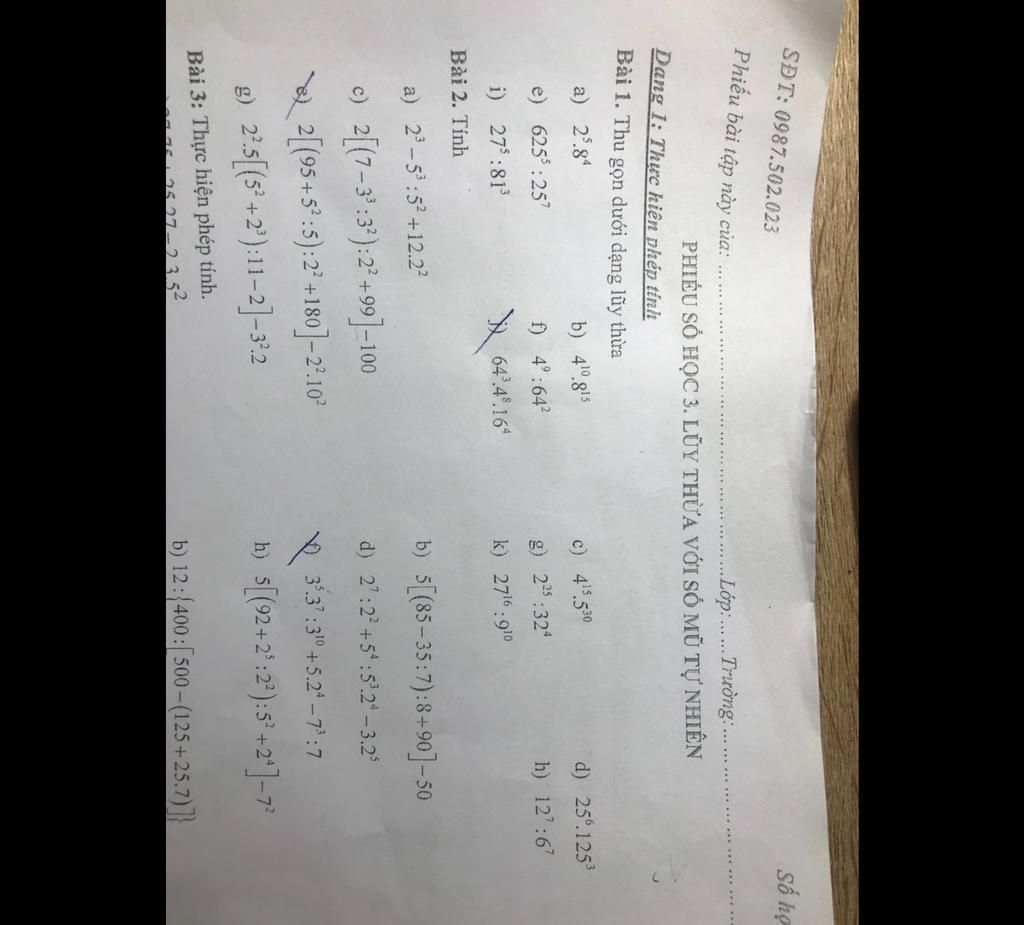 SĐT: 0987.502.023 Số họ
Phiếu bài tập này của: ........................................ Lớp: ...... Trường: ........................
PHIẾU SỐ HỌC 3. LŨY THỪA VỚI SỐ MŨ TỰ NHIÊN
Dạng 1: Thực hiện phép tính
Bài 1. Thu gọn dưới dạng lũy thừa
a) 2⁵.8⁴ b) 4¹⁰.8¹⁵ c) 4¹⁵.5³⁰ d) 25⁶.125³
e) 625⁵ : 25⁷ f) 4⁹ : 64² g) 2²⁵ : 32⁴ h) 12⁷ : 6⁷
i) 27⁵ : 81³ j) 64³.4⁸.16⁴ k) 27¹⁶ : 9¹⁰
Bài 2. Tính
a) 2³ − 5³ : 5² + 12.2² b) 5[(85 − 35 : 7) : 8 + 90] − 50
c) 2[(7 − 3³ : 3²) : 2² + 99] − 100 d) 2⁷ : 2² + 5⁴ : 5³.2⁴ − 3.2⁵
e) 2[(95 + 5² : 5) : 2² + 180] − 2².10² f) 3⁵.3⁷ : 3¹⁰ + 5.2⁴ − 7³ : 7
g) 2².5[(5² + 2³) : 11 − 2] − 3².2 h) 5[(92 + 2⁵ : 2²) : 5² + 2⁴] − 7²
Bài 3: Thực hiện phép tính.
25.27 − 2.3.5² b) 12 : {400 : [500 − (125 + 25.7)]}